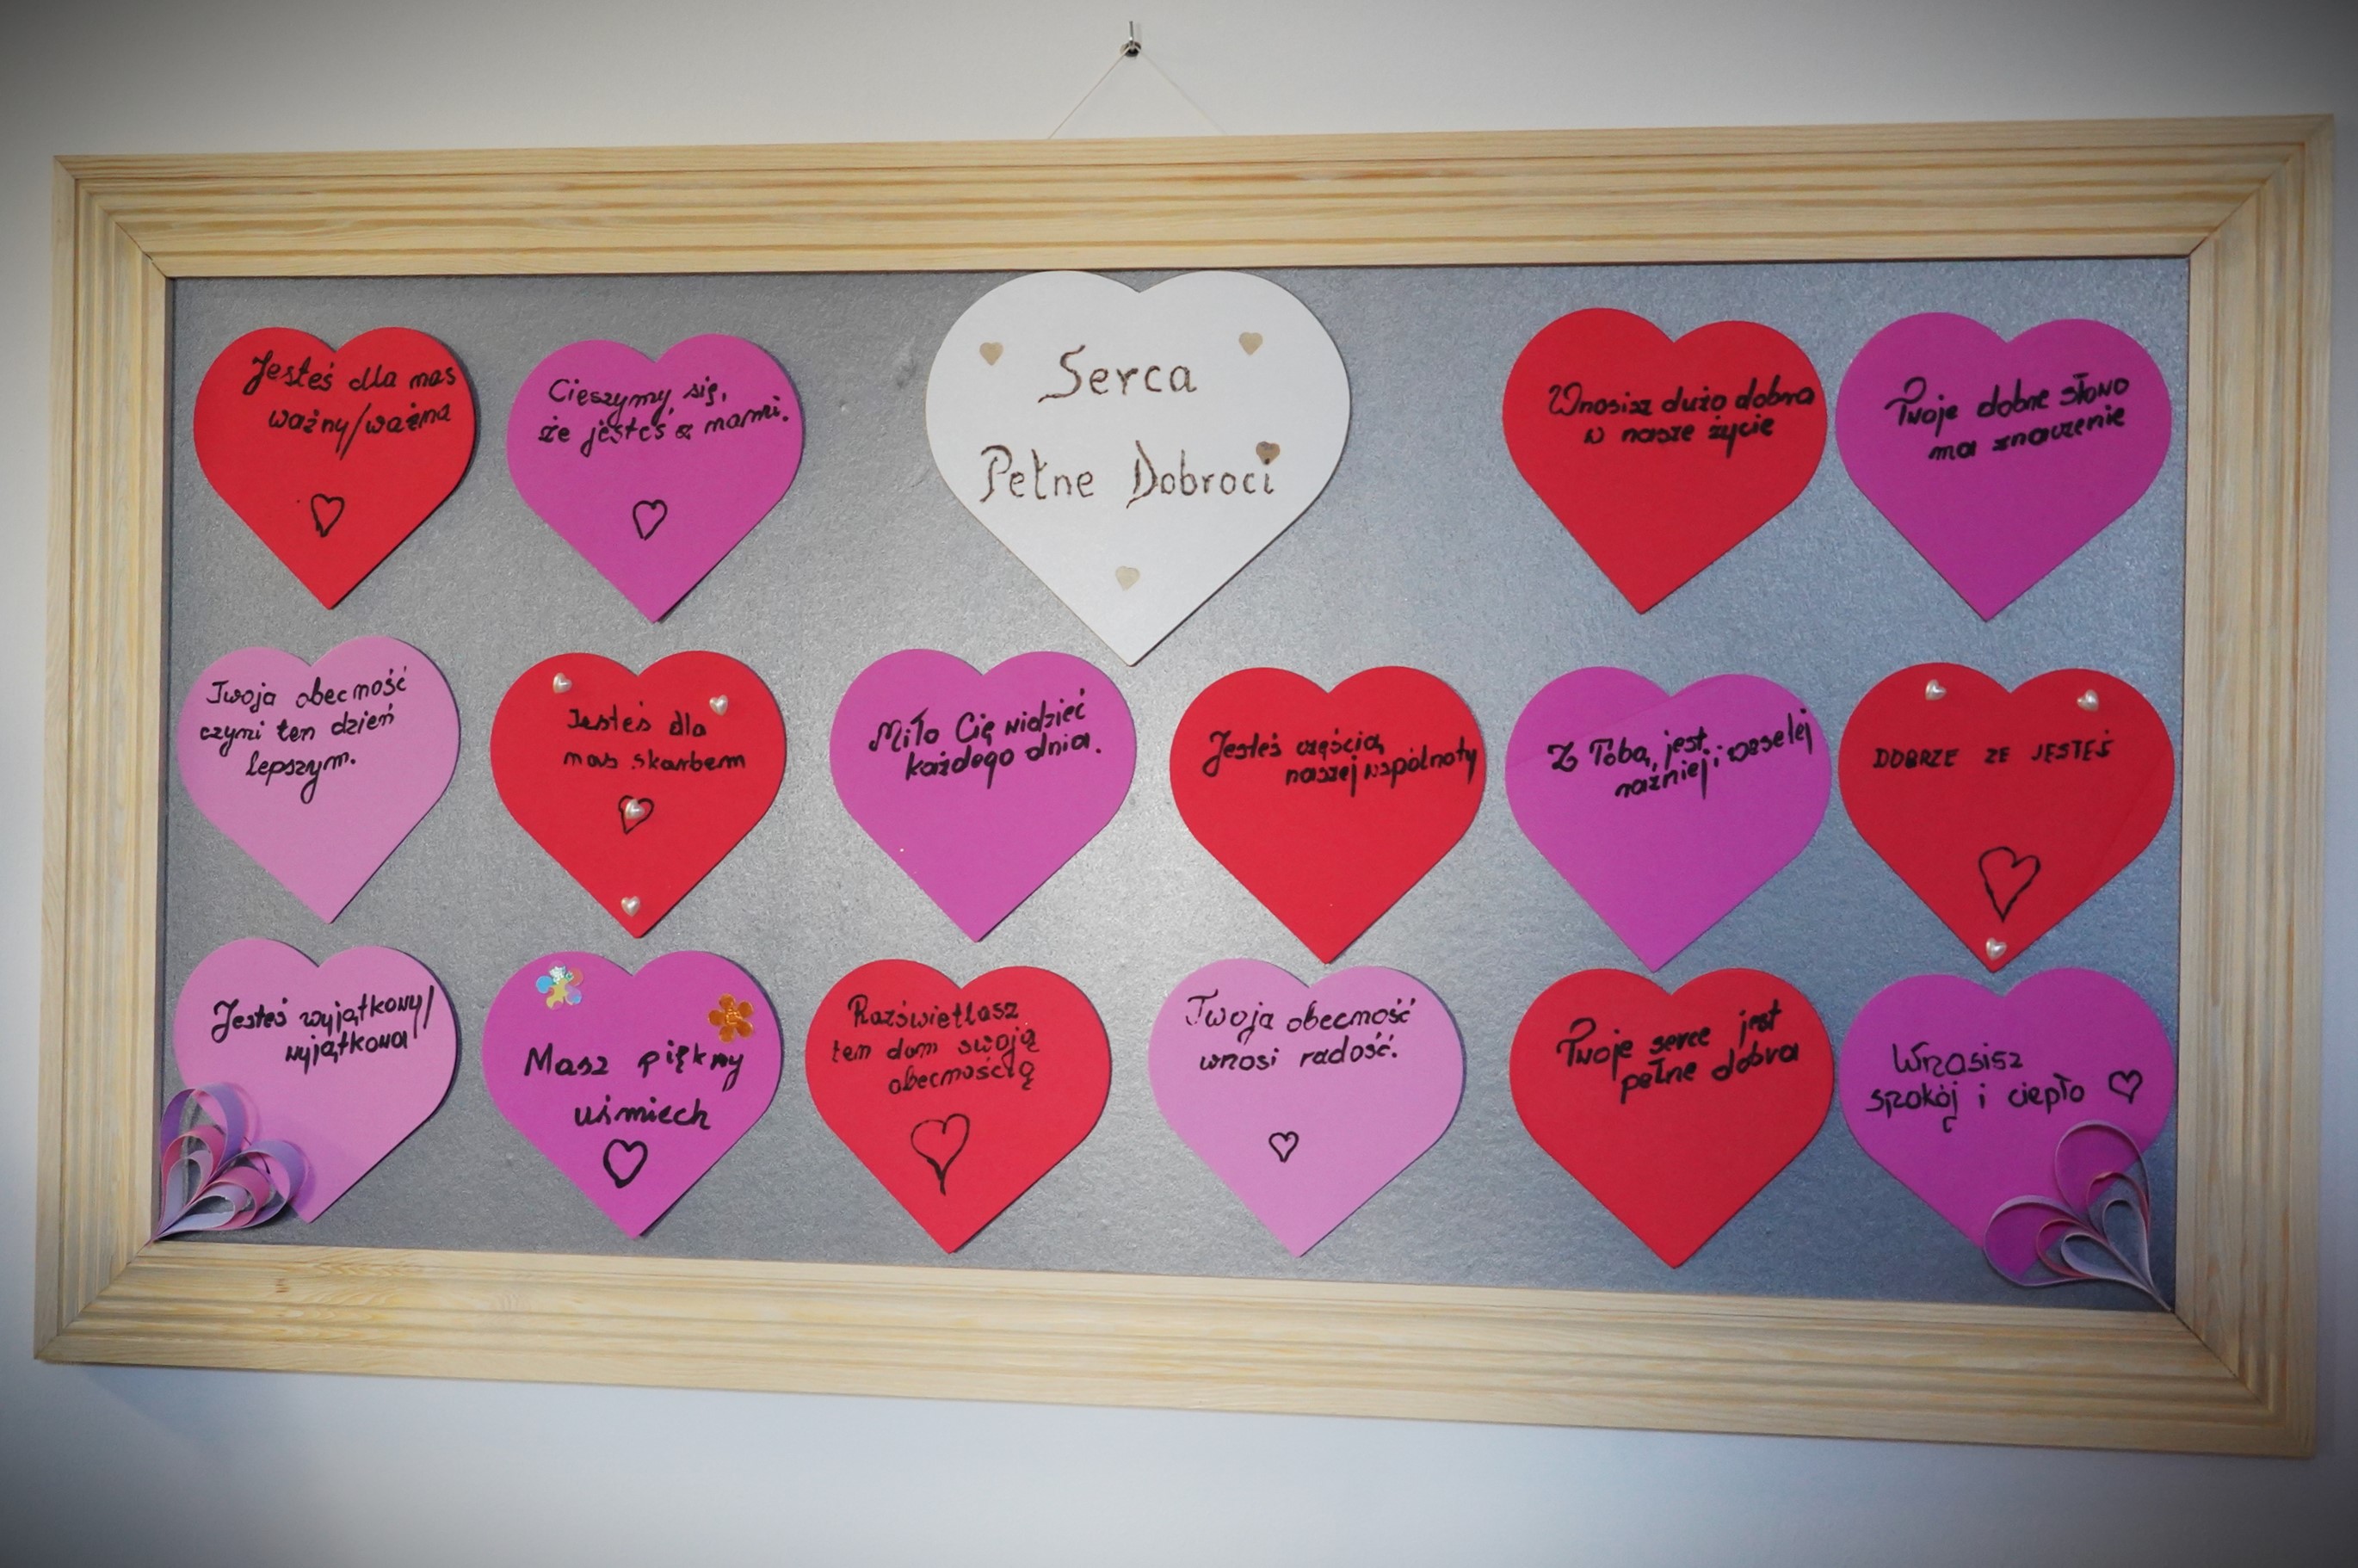 Jesteś dla nas
ważny/ważna
Cieszymy się,
że jesteś z nami.
Serca
Pełne Dobroci
Wnosisz dużo dobra
w nasze życie
Twoje dobre słowo
ma znaczenie
Twoja obecność
czyni ten dzień
lepszym.
Jesteś dla
nas skarbem
Miło Cię widzieć
każdego dnia.
Jesteś częścią
naszej wspólnoty
Z Tobą jest
raźniej i weselej
DOBRZE ZE JESTEŚ
Jesteś wyjątkowy/
wyjątkowa
Masz piękny
uśmiech
Rozświetlasz
ten dom swoją
obecnością
Twoja obecność
wnosi radość.
Twoje serce jest
pełne dobra
Wnosisz
spokój i ciepło